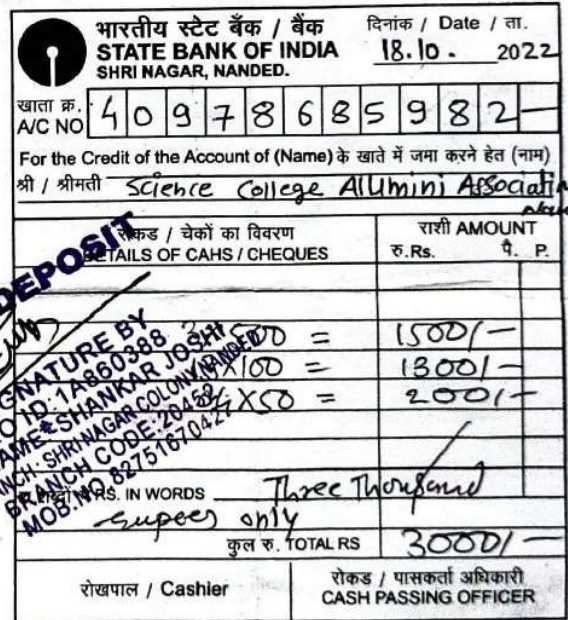 भारतीय स्टेट बँक / बैंक
STATE BANK OF INDIA
SHRI NAGAR, NANDED.
दिनांक / Date / ता.
18.10. 2022
खाता क्र.
A/C NO 40978685982-
For the Credit of the Account of (Name) के खाते में जमा करने हेत (नाम)
श्री / श्रीमती Science College Allumini Associatin
रोकड / चेकों का विवरण
DETAILS OF CAHS / CHEQUES
राशी AMOUNT
रु.Rs. पै. P.
DEPOSIT
500 = 1500/-
X100 = 1300/-
X50 = 200/-
SIGNATURE BY
ID: 1A860388
NAME: SHANKAR JOSHI
BRANCH: SHRI NAGAR COLONY NANDED
BRANCH CODE: 20453
MOB.NO. 8275167042
RS. IN WORDS Three Thousand
rupees only
कुल रु. TOTAL RS 3000/-
रोखपाल / Cashier
रोकड / पासकर्ता अधिकारी
CASH PASSING OFFICER